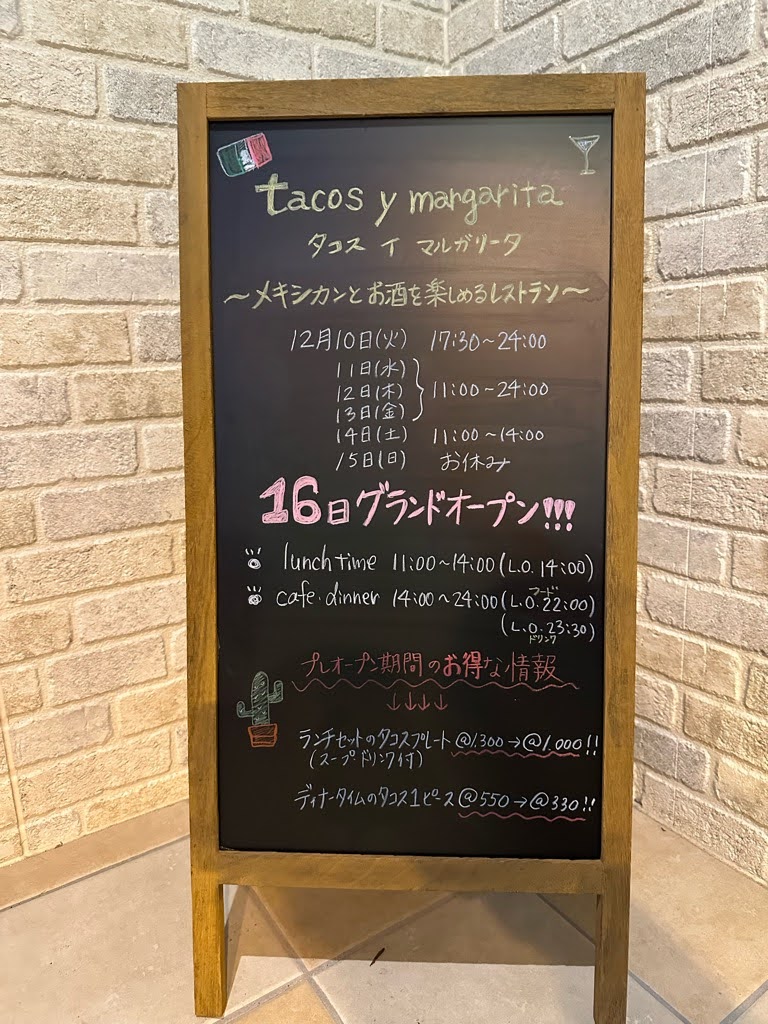 tacos y margarita
タコス イ マルガリータ
～メキシカンとお酒を楽しめるレストラン～
12月10日(火) 17:30～24:00
11日(水)
12日(木) 11:00～24:00
13日(金)
14日(土) 11:00～14:00
15日(日) お休み
16日グランドオープン!!!
lunch time 11:00～14:00(L.O.14:00)
cafe・dinner 14:00～24:00(L.O.22:00)
フード
(L.O.23:30)
ドリンク
プレオープン期間のお得な情報
↓↓↓↓
ランチセットのタコスプレート@1.300→@1.000!!
(スープドリンク付)
ディナータイムのタコス1ピース@550→@330!!